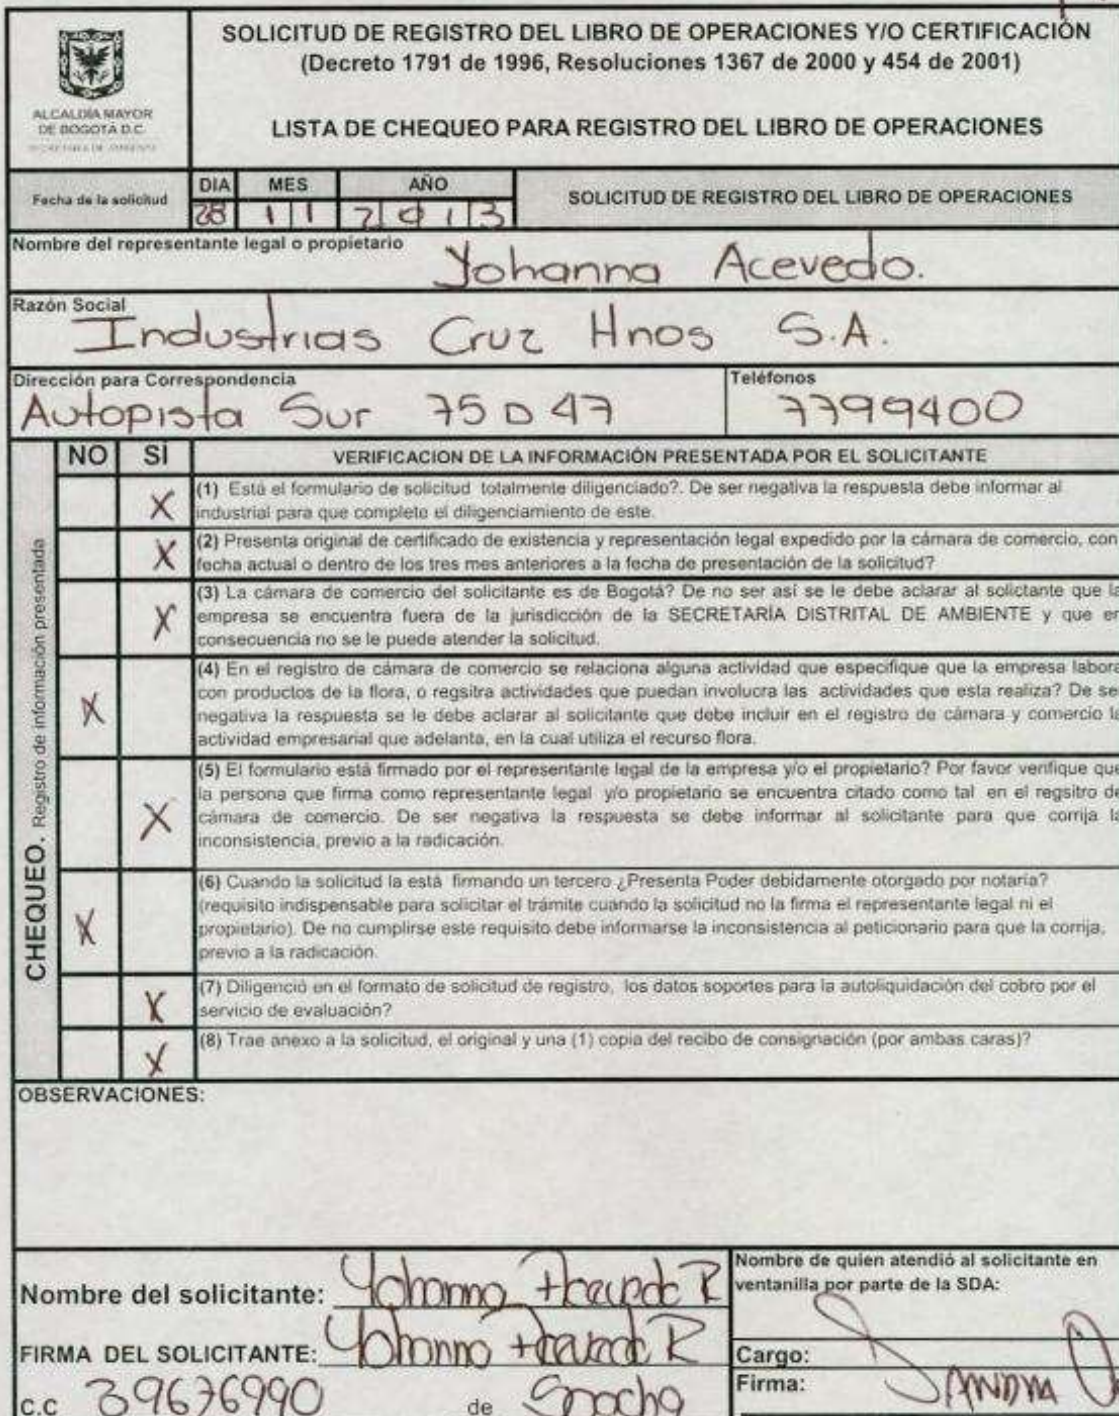 SOLICITUD DE REGISTRO DEL LIBRO DE OPERACIONES Y/O CERTIFICACIÓN
(Decreto 1791 de 1996, Resoluciones 1367 de 2000 y 454 de 2001)
ALCALDÍA MAYOR
DE BOGOTÁ D.C.
LISTA DE CHEQUEO PARA REGISTRO DEL LIBRO DE OPERACIONES
Fecha de la solicitud
DIA MES AÑO
28 11 2013
SOLICITUD DE REGISTRO DEL LIBRO DE OPERACIONES
Nombre del representante legal o propietario
Yohanna Acevedo.
Razón Social
Industrias Cruz Hnos S.A.
Dirección para Correspondencia
Autopista Sur 75 D 47
Teléfonos
7799400
CHEQUEO. Registro de información presentada
NO SI VERIFICACION DE LA INFORMACIÓN PRESENTADA POR EL SOLICITANTE
X (1) Está el formulario de solicitud totalmente diligenciado?. De ser negativa la respuesta debe informar al
industrial para que complete el diligenciamiento de este.
X (2) Presenta original de certificado de existencia y representación legal expedido por la cámara de comercio, con
fecha actual o dentro de los tres mes anteriores a la fecha de presentación de la solicitud?
X (3) La cámara de comercio del solicitante es de Bogotá? De no ser así se le debe aclarar al solictante que la
empresa se encuentra fuera de la jurisdicción de la SECRETARÍA DISTRITAL DE AMBIENTE y que en
consecuencia no se le puede atender la solicitud.
X (4) En el registro de cámara de comercio se relaciona alguna actividad que especifique que la empresa labora
con productos de la flora, o regsitra actividades que puedan involucra las actividades que esta realiza? De se
negativa la respuesta se le debe aclarar al solicitante que debe incluir en el registro de cámara y comercio la
actividad empresarial que adelanta, en la cual utiliza el recurso flora.
X (5) El formulario está firmado por el representante legal de la empresa y/o el propietario? Por favor verifique que
la persona que firma como representante legal y/o propietario se encuentra citado como tal en el regsitro de
cámara de comercio. De ser negativa la respuesta se debe informar al solicitante para que corrija la
inconsistencia, previo a la radicación.
X (6) Cuando la solicitud la está firmando un tercero ¿Presenta Poder debidamente otorgado por notaría?
(requisito indispensable para solicitar el trámite cuando la solicitud no la firma el representante legal ni el
propietario). De no cumplirse este requisito debe informarse la inconsistencia al peticionario para que la corrija,
previo a la radicación.
X (7) Diligenció en el formato de solicitud de registro, los datos soportes para la autoliquidación del cobro por el
servicio de evaluación?
X (8) Trae anexo a la solicitud, el original y una (1) copia del recibo de consignación (por ambas caras)?
OBSERVACIONES:
Nombre del solicitante: Yohanna Acevedo R
FIRMA DEL SOLICITANTE: Yohanna Acevedo R
C.C 39676990 de Soacha
Nombre de quien atendió al solicitante en
ventanilla por parte de la SDA:
Cargo:
Firma: SANDRA